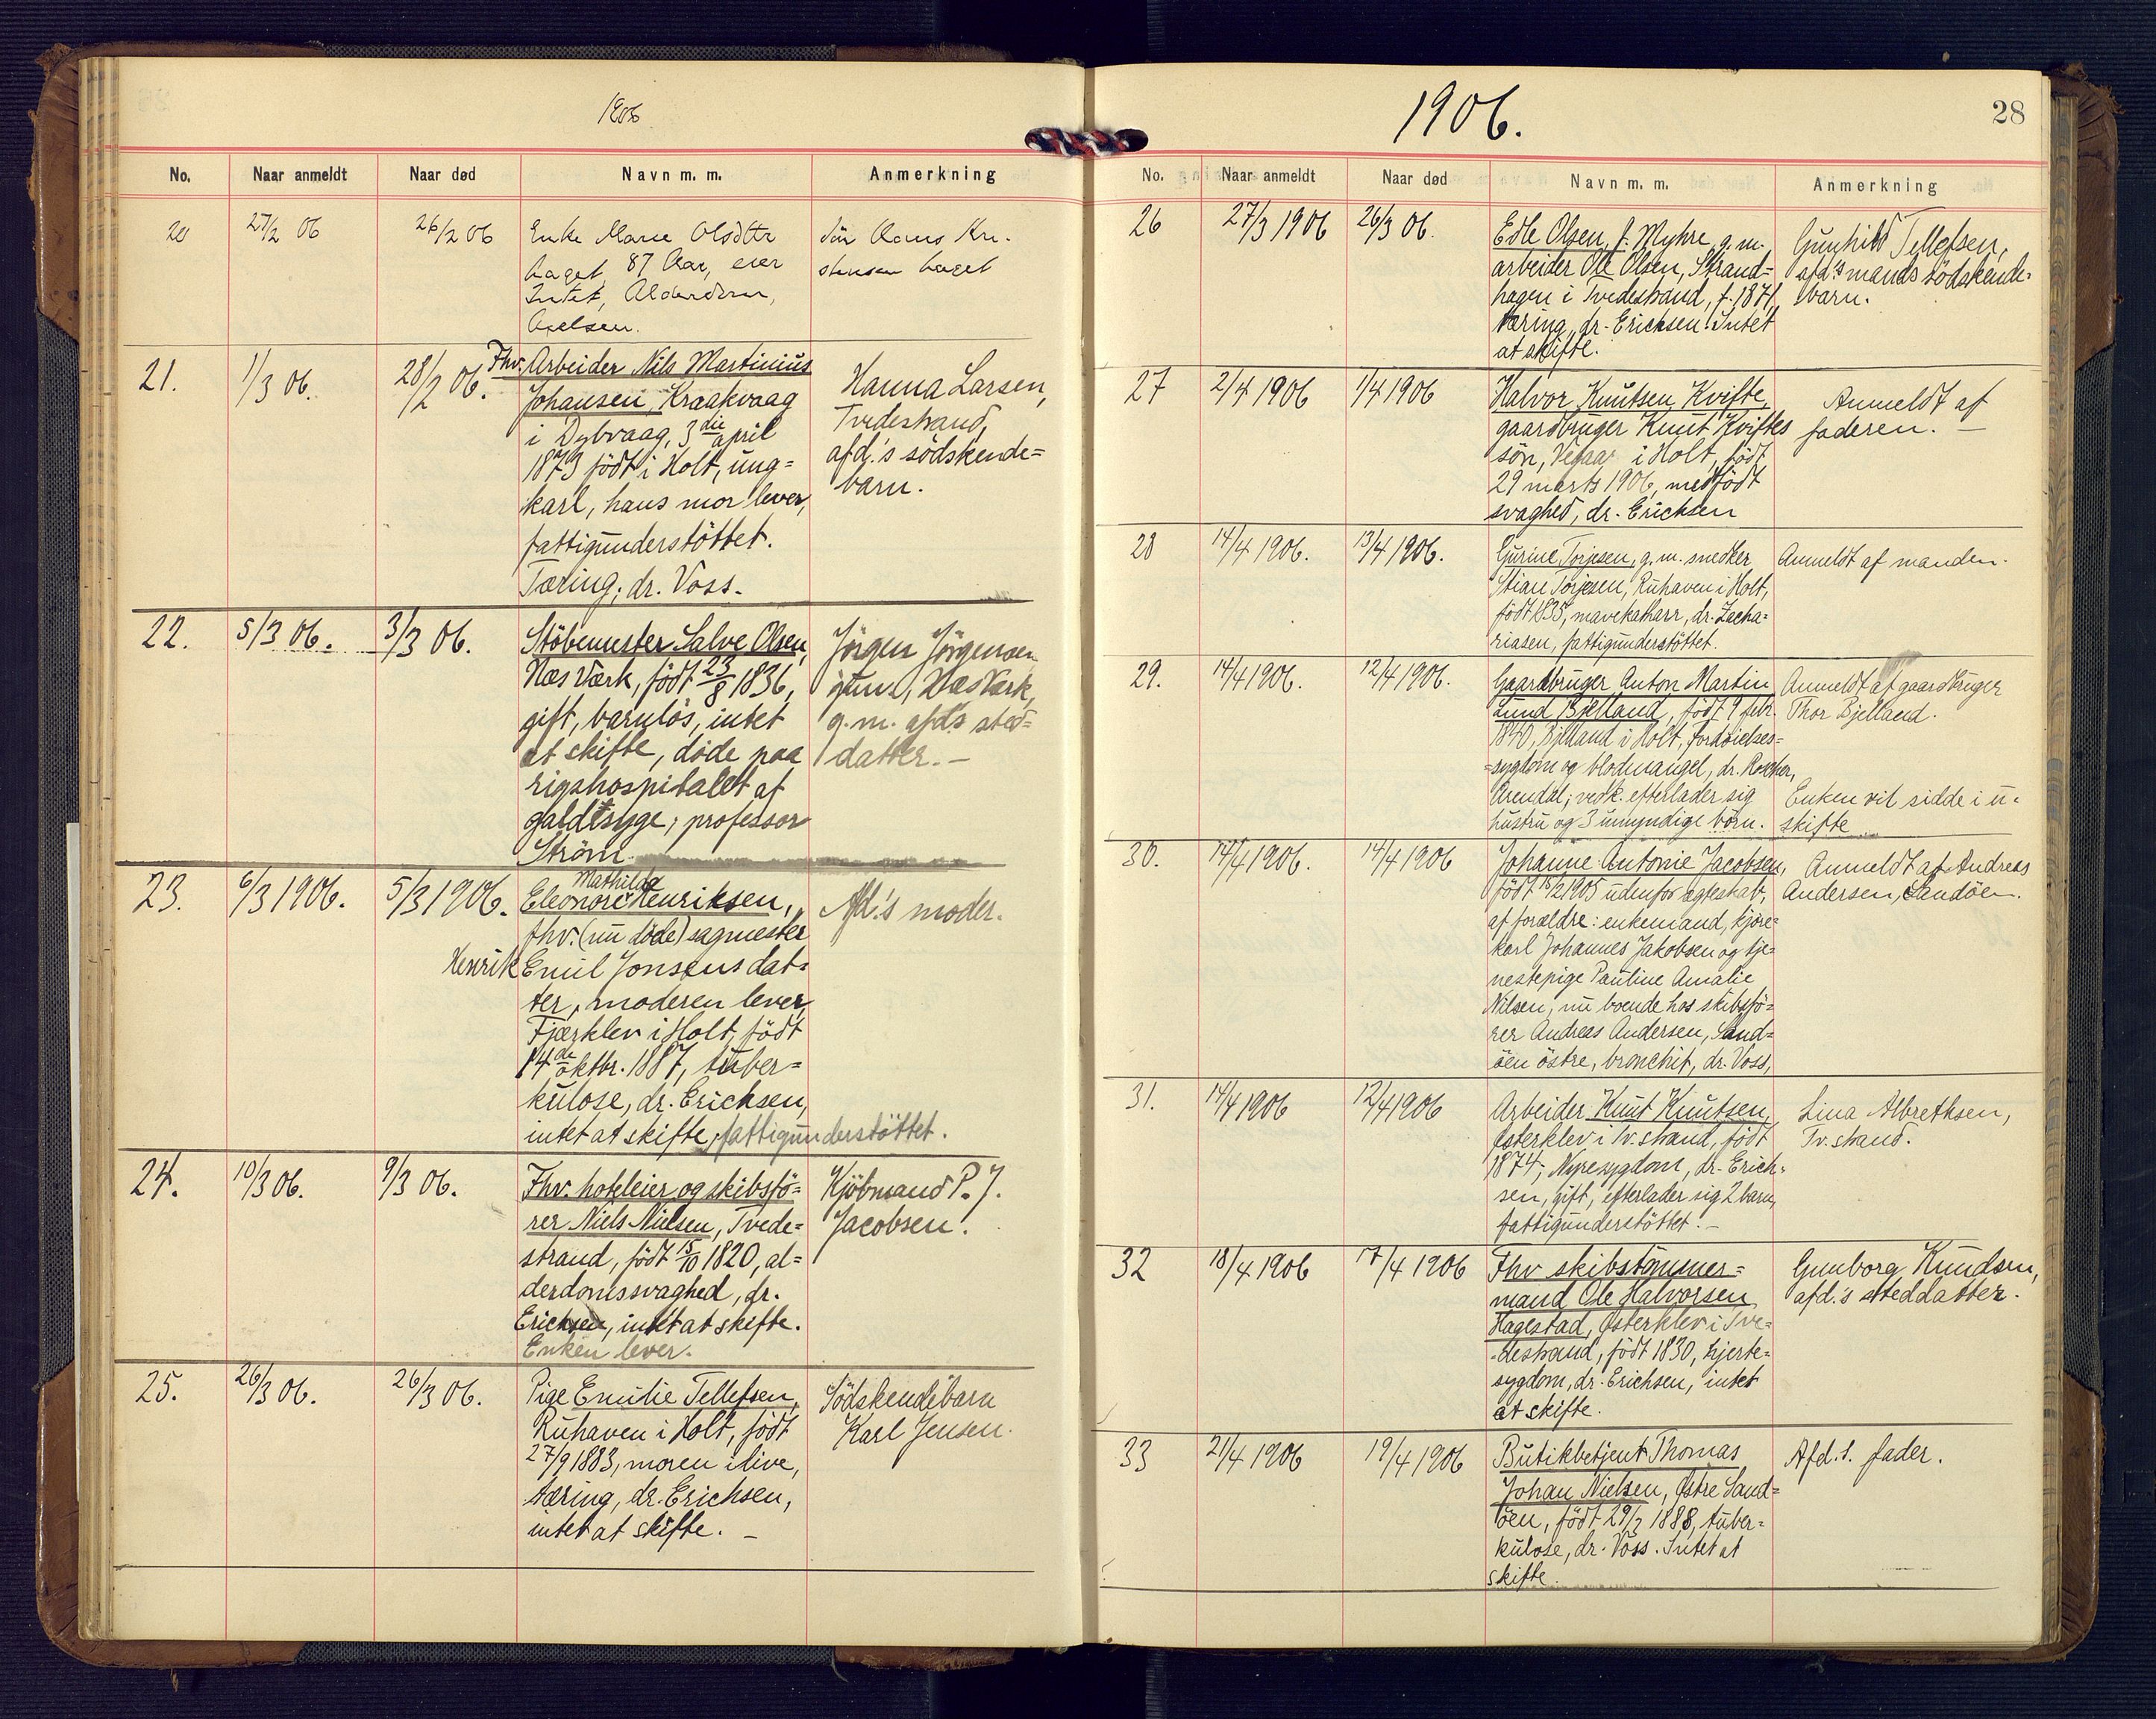 1906
No. Naar anmeldt Naar død Navn m. m. Anmerkning
20 27/2 06 26/2 06 Enke Marie Olsdttr
Haget, 87 Aar, eier
Intet, Alderdom,
Axelsen.
Sön Claus Kri-
stensen Haget
21. 1/3 06. 28/2 06. Fhv. Arbeider Nils Martinius
Johansen, Kraakvaag
i Dybvaag, 3die april
1873 födt i Holt, ung-
karl, hans mor lever,
fattigunderstöttet.
Tæring; dr. Voss.
Hanna Larsen,
Tvedestrand,
afd.'s södskende-
barn.
22. 5/3 06. 3/3 06. Stöbemester Salve Olsen,
Næs Værk, födt 23/8 1836,
gift, barnlös, intet
at skifte, döde paa
rigshospitalet af
galdtsyge; professor
Ström.
Jörgen Jörgensen
jun., Næs Værk,
g. m. afd's sted-
datter. —
23. 6/3 1906. 5/3 1906. Mathilde
Eleonore Henriksen,
fhv. (nu döde) sagmester
Henrik Emil Jonsens dat-
ter, moderen lever,
Fjærklev i Holt, födt
14de oktbr. 1887, tuber-
kulose, dr. Erichsen,
intet at skifte, fattigunderstöttet.
Afd.'s moder.
24. 10/3 06. 9/3 06. Fhv. hoteleier og skibsfö-
rer Niels Nielsen, Tvede-
strand, födt 15/10 1820, al-
derdomssvaghed, dr.
Erichsen, intet at skifte.
Enken lever.
Kjöbmand P. J.
Jacobsen.
25. 26/3 06. 26/3 06. Pige Emilie Tellefsen,
Ruhaven i Holt, födt
27/9 1883, moren ilive,
tæring, dr. Erichsen,
intet at skifte. —
Södskendebarn
Karl Jensen.
1906.
28
No. Naar anmeldt Naar død Navn m. m. Anmerkning
26 27/3 1906 26/3 06. Edle Olsen, f. Myhre, g. m.
arbeider Ole Olsen, Strand-
hagen i Tvedestrand, f. 1871,
Tæring, dr. Erichsen. Intet
at skifte.
Gunhild Tellefsen,
afd.'s mands södskende-
barn.
27 2/4 1906 1/4 1906 Halvor Knutsen Kvifte,
gaardbruger Knut Kviftes
sön, i Holt, födt
29 marts 1906, medfödt
svaghed, dr. Erichsen
Anmeldt af
faderen. —
28 14/4 1906. 13/4 1906. Gurine Torjesen, g. m. snedker
Stian Torjesen, Ruhaven i Holt,
födt 1835, mavekatarr, dr. Zacha-
riasen, fattigunderstöttet.
Anmeldt af manden.
29. 14/4 1906. 12/4 1906. Gaardbruger Anton Martin
Lund Bjelland, födt 9 febr.
1840, Bjelland i Holt, fordöielses-
sygdom og blodmangel, dr.
Arendal; vedk. efterlader sig
hustru og 3 umyndige börn.
Anmeldt af gaardbruger
Thor Bjelland.
Enken vil sidde i u-
skifte
30. 14/4 1906. 14/4 1906 Johanne Antonie Jacobsen,
födt 1905 udenfor ægteskab,
af forældre: enkemand, kjöre-
karl Johannes Jakobsen og tje-
nestepige Pauline Amalie
Nilsen, nu boende hos skibsfö-
rer Andreas Andersen, Sand-
öen östre, bronchit, dr. Voss,
Anmeldt af Andreas
Andersen, Sandöen.
31. 14/4 1906 12/4 1906 Arbeider Knut Knutsen,
Österklev i tv.strand, födt
1874; Nyresygdom, dr. Erich-
sen, gift, efterlader sig 2 barn,
fattigunderstöttet. —
Lina Albrethsen,
Tv.strand.
32 18/4 1906 17/4 1906 Fhv skibstömmer-
mand Ole Halvorsen
Hagestad, Österklev i Tve-
destrand, födt 1830, hjerte-
sygdom, dr. Erichsen, intet
at skifte.
Gunborg Knudsen,
afd.'s steddatter.
33 21/4 1906 19/4 1906 Butikbetjent Thomas
Johan Nielsen, Östre Sand-
öen, födt 29/3 1888, tuber-
kulose, dr. Voss. Intet at
skifte.
Afd.s. fader.